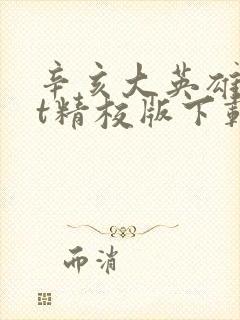 辛亥大英雄
t精校版下载
而消